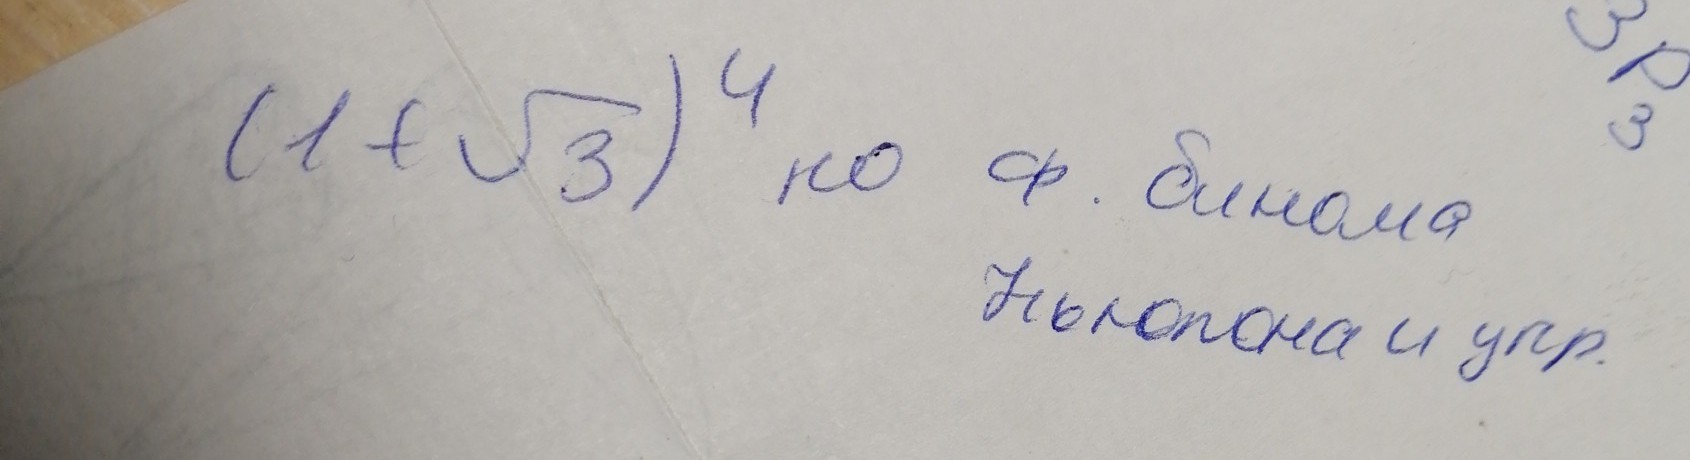 (1+√3)⁴ по ф. бинома
Ньютона и упр.